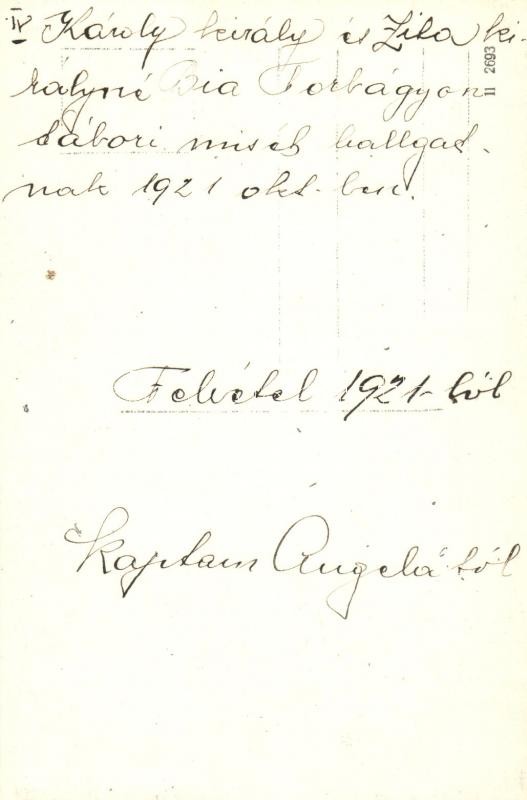 IV Károly király és Zita ki-
rályné Bia Torbágyon
tábori misét hallgat-
nak 1921 okt-ben.
II 2693
Felvétel 1921-ből
Kaptam Angelától